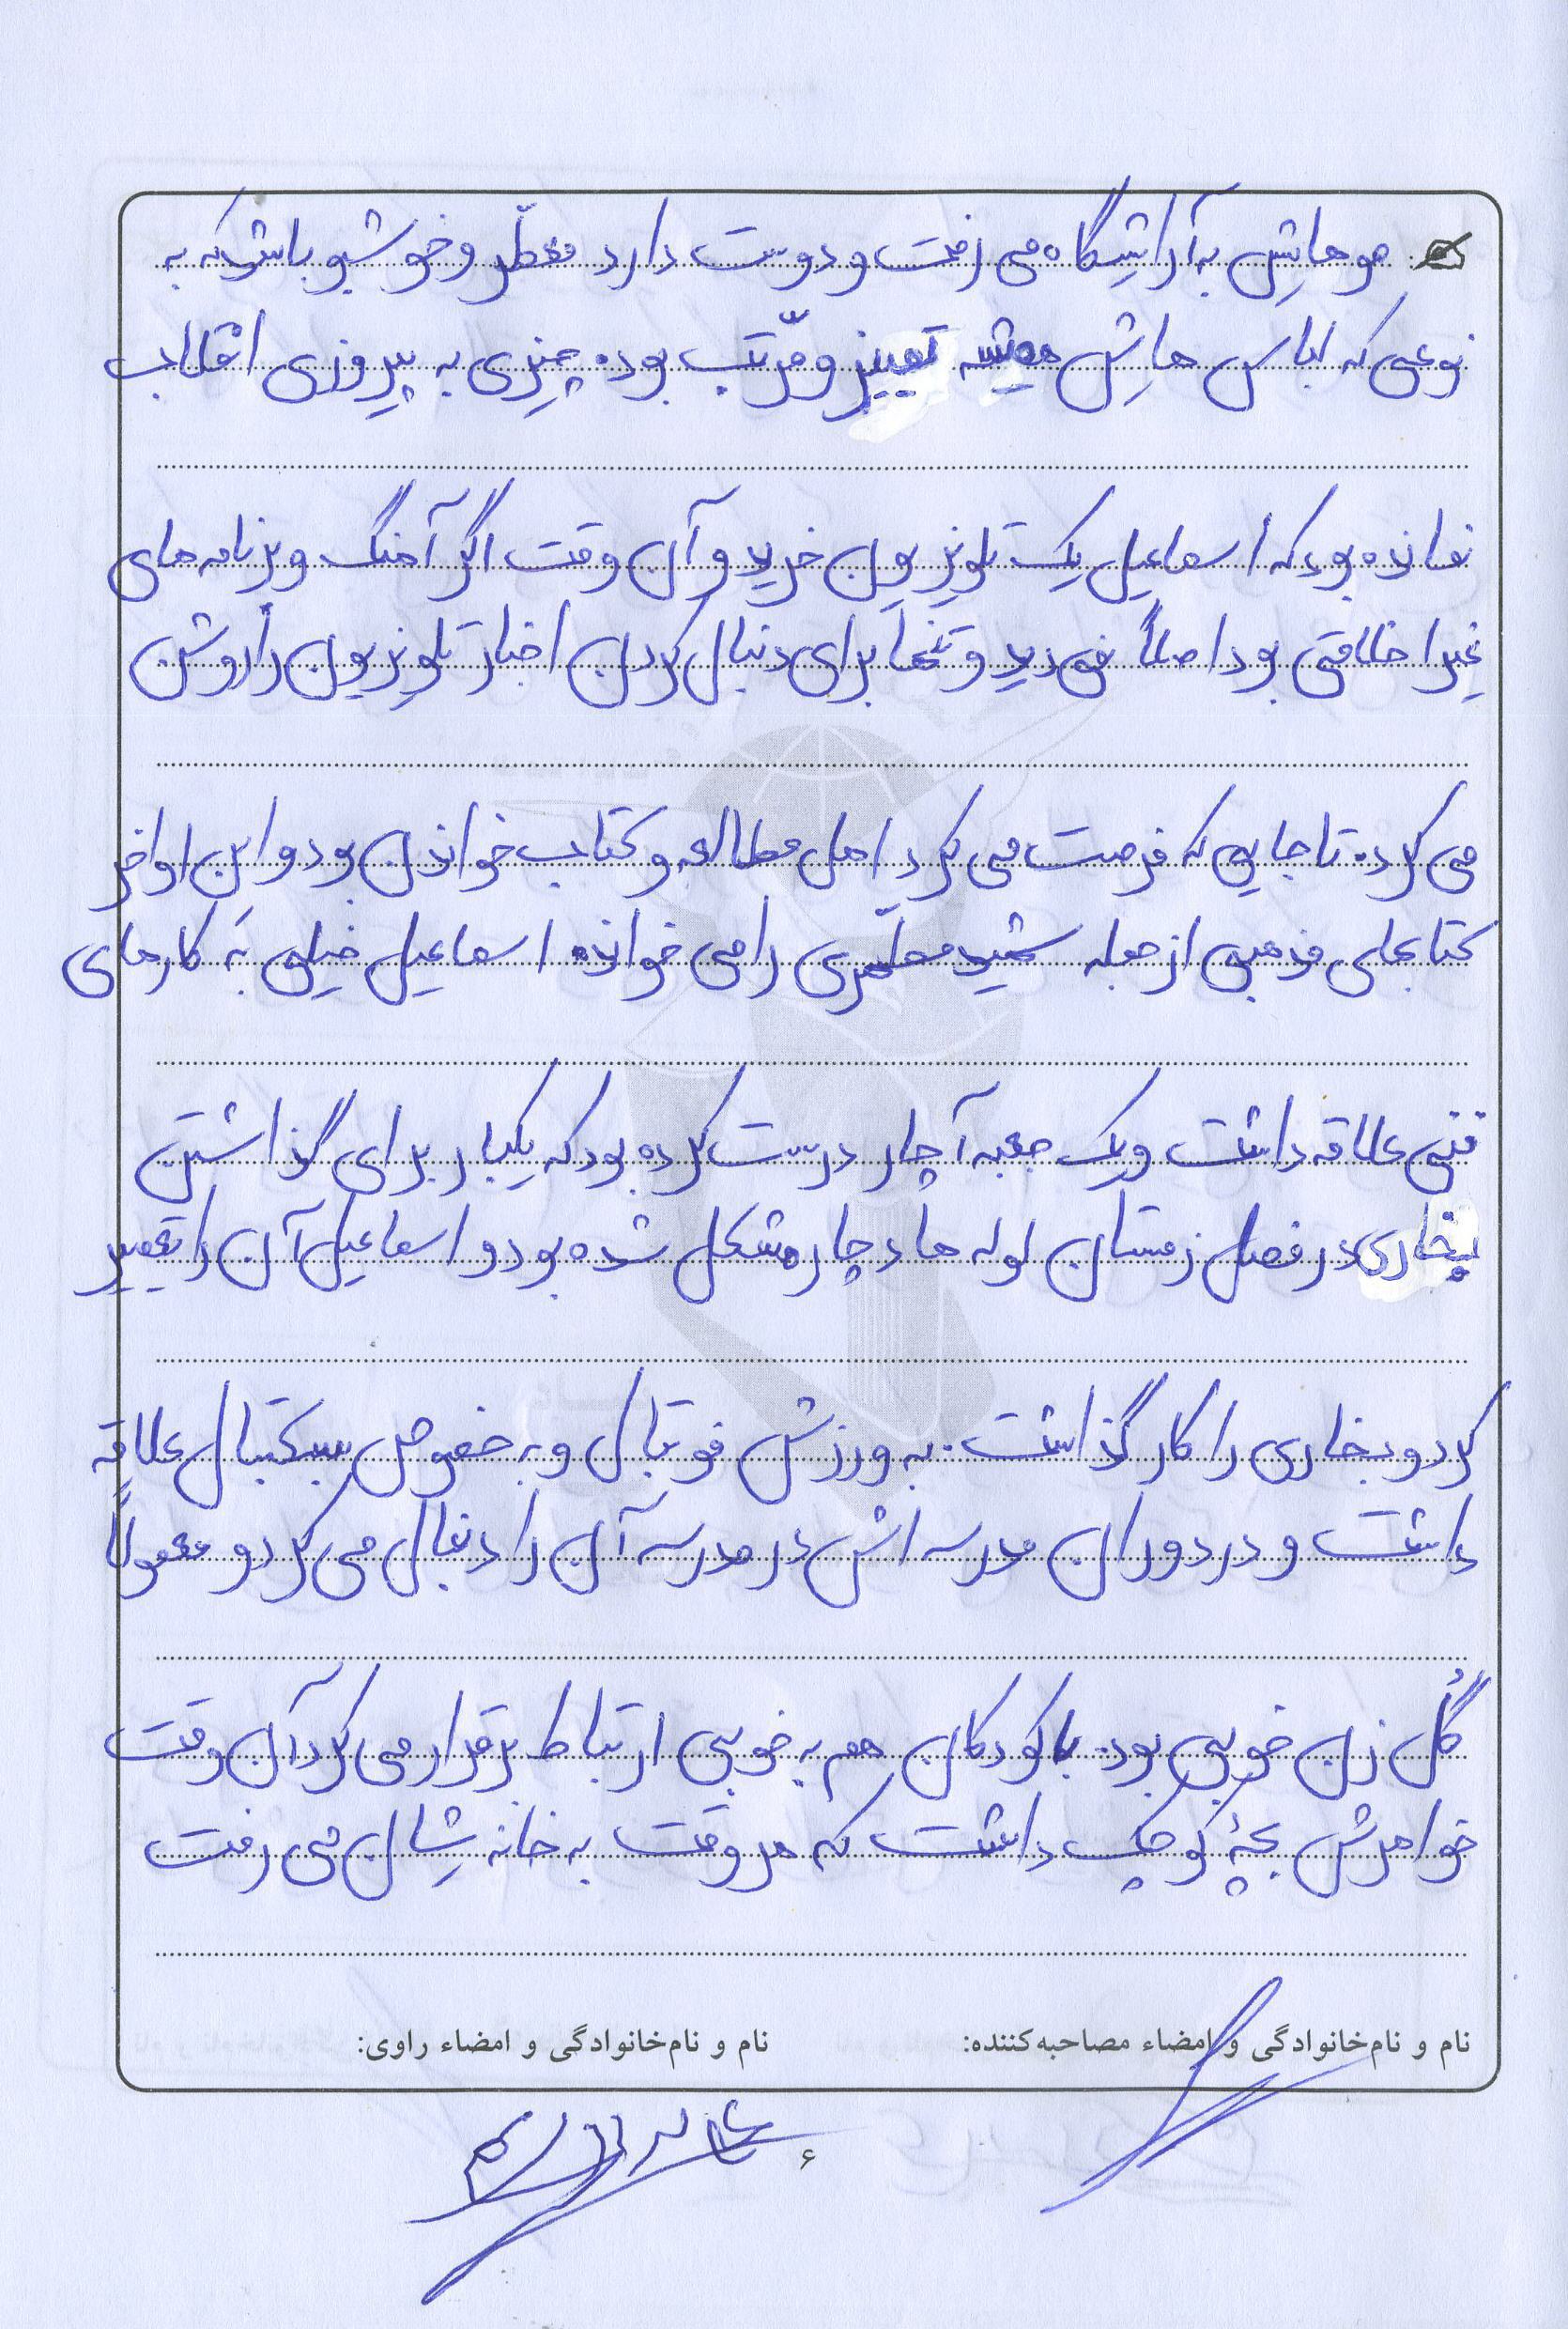 موهایش به آرایشگاه می رفت و دوست دارد معطّر و خوشبو باشد که به
نوعی که لباس هایش همیشه تمییز و مرّتب بود. چیزی به پیروزی انقلاب
نمانده بود که اسماعیل یک تلویزیون خرید و آن وقت اگر آهنگ و برنامه های
غیر اخلاقی بود اصلاً نمی دید و تنها برای دنبال کردن اخبار تلویزیون را روشن
می کرد. تا جایی که فرصت می کرد اهل مطالعه و کتاب خواندن بود و این اواخر
کتابهای مذهبی از جمله شهید مطهّری را می خواند. اسماعیل خیلی به کارهای
فنی علاقه داشت و یک جعبه آچار درست کرده بود که یکبار برای گذاشتن
بخاری در فصل زمستان لوله ها دچار مشکل شده بود و اسماعیل آن را تعمیر
کرد و بخاری را کار گذاشت. به ورزش فوتبال و به خصوص بسکتبال علاقه
داشت و در دوران مدرسه اش در مدرسه آن را دنبال می کرد و معمولاً
گُل زن خوبی بود. با کودکان هم به خوبی ارتباط برقرار می کرد آن وقت
خواهرش بچهٔ کوچک داشت که هر وقت به خانه شان می رفت
نام و نام‌خانوادگی و امضاء مصاحبه‌کننده:
نام و نام‌خانوادگی و امضاء راوی:
۶